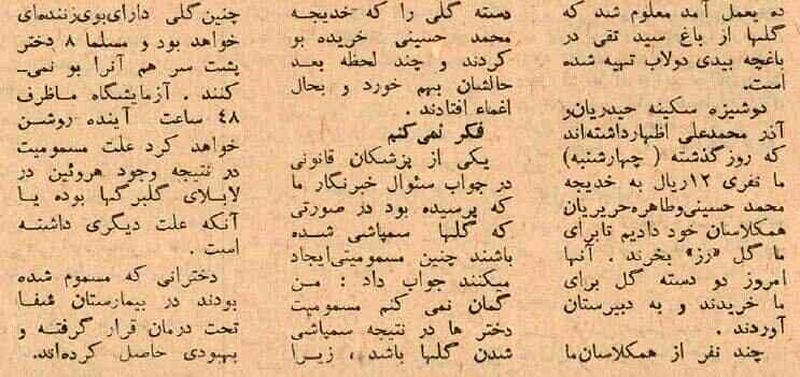 ده بعمل آمد معلوم شد که
گلها از باغ سید تقی در
باغچه بیدی دولاب تهیه شده
است.
دوشیزه سکینه حیدریان و
آذر محمدعلی اظهارداشته‌اند
که روز گذشته ( چهارشنبه)
ما نفری ۱۲ریال به خدیجه
محمد حسینی وطاهره حریریان
همکلاسان خود دادیم تابرای
ما گل «رز» بخرند . آنها
امروز دو دسته گل برای
ما خریدند و به دبیرستان
آوردند .
چند نفر از همکلاسان‌ما
دسته گلی را که خدیجه
محمد حسینی خریده بو
کردند و چند لحظه بعد
حالشان بهم خورد و بحال
اغماء افتادند .
فکر نمی‌کنم
یکی از پزشکان قانونی
در جواب سئوال خبرنگار ما
که پرسیده بود در صورتی
که گلها سمپاشی شده
باشند چنین مسمومیتی‌ایجاد
میکنند جواب داد : من
گمان نمی کنم مسمومیت
دختر ها در نتیجه سمپاشی
شدن گلها باشد ، زیرا
چنین گلی دارای‌بوی‌زننده‌ای
خواهد بود و مسلما ۸ دختر
پشت سر هم آنرا بو نمی‌ـ
کنند . آزمایشگاه ماظرف
۴۸ ساعت آینده روشن
خواهد کرد علت مسمومیت
در نتیجه وجود هروئین در
لابلای گلبرگها بوده یا
آنکه علت دیگری داشته
است .
دخترانی که مسموم شده
بودند در بیمارستان شفا
تحت درمان قرار گرفته و
بهبودی حاصل کرده‌اند.